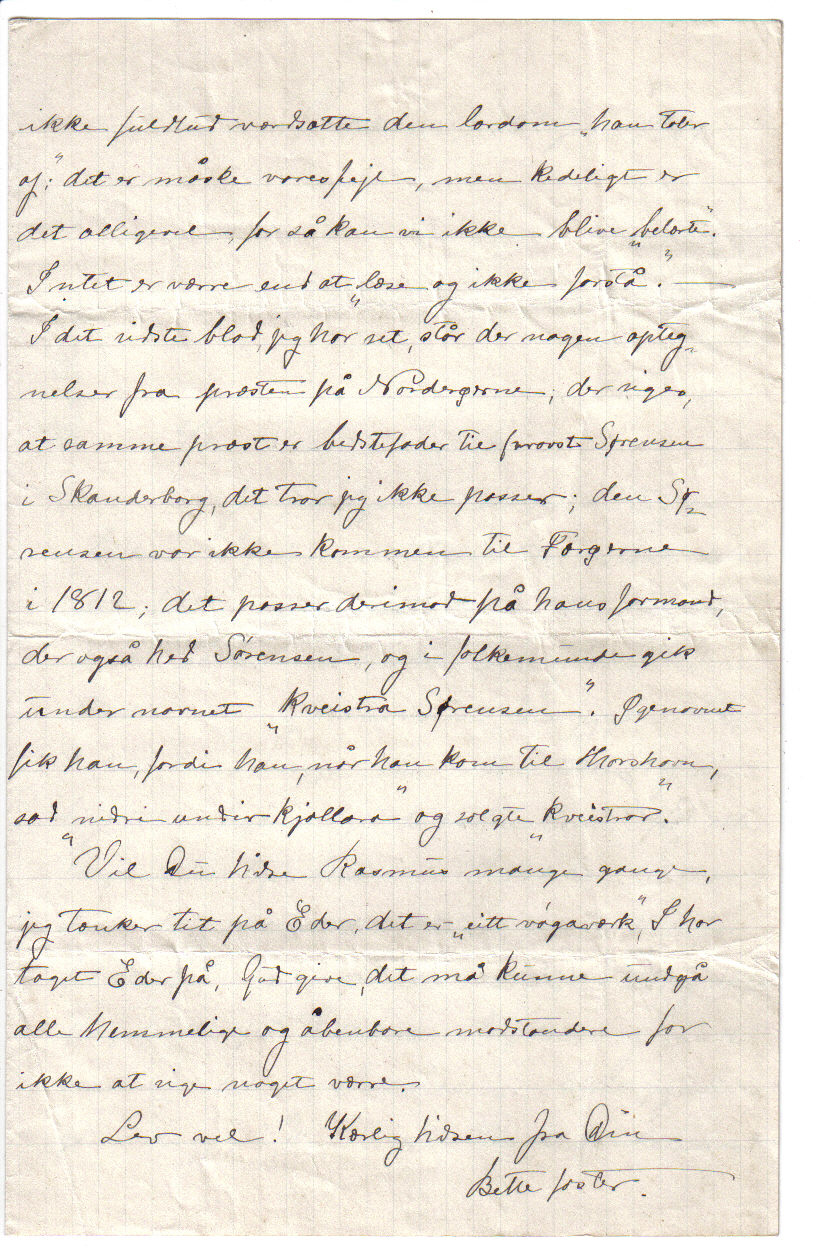 ikke fuldtud værdsætte den lærdom „han taler
af;” det er måske vores fejl, men kedeligt er
det alligevel, for så kan vi ikke blive „belærte”.
Intet er værre end at „læse og ikke forstå”. —
I det sidste blad, jeg har set, står der nogen opteg-
nelser fra præsten på Nordørerne; der siges,
at samme præst er bedstefader til provst Sørensen
i Skanderborg, det tror jeg ikke passer; den Sø-
rensen var ikke kommen til Færøerne
i 1812; det passer derimod på hans formand,
der også hed Sørensen, og i folkemunde gik
under navnet „Kveistra Sørensen”. Øgenavnet
fik han, fordi han, når han kom til Thorshavn,
sad „niðri undir kjallara” og solgte „kveistrar”.
Vil Du hilse Rasmus mange gange,
jeg tænker tit på Eder, det er „eitt vágaverk”, I har
taget Eder på, Gud give, det må kunne undgå
alle hemmelige og åbenbare modstandere for
ikke at sige noget værre.
Lev vel! Kærlig hilsen fra Din
Bette faster.